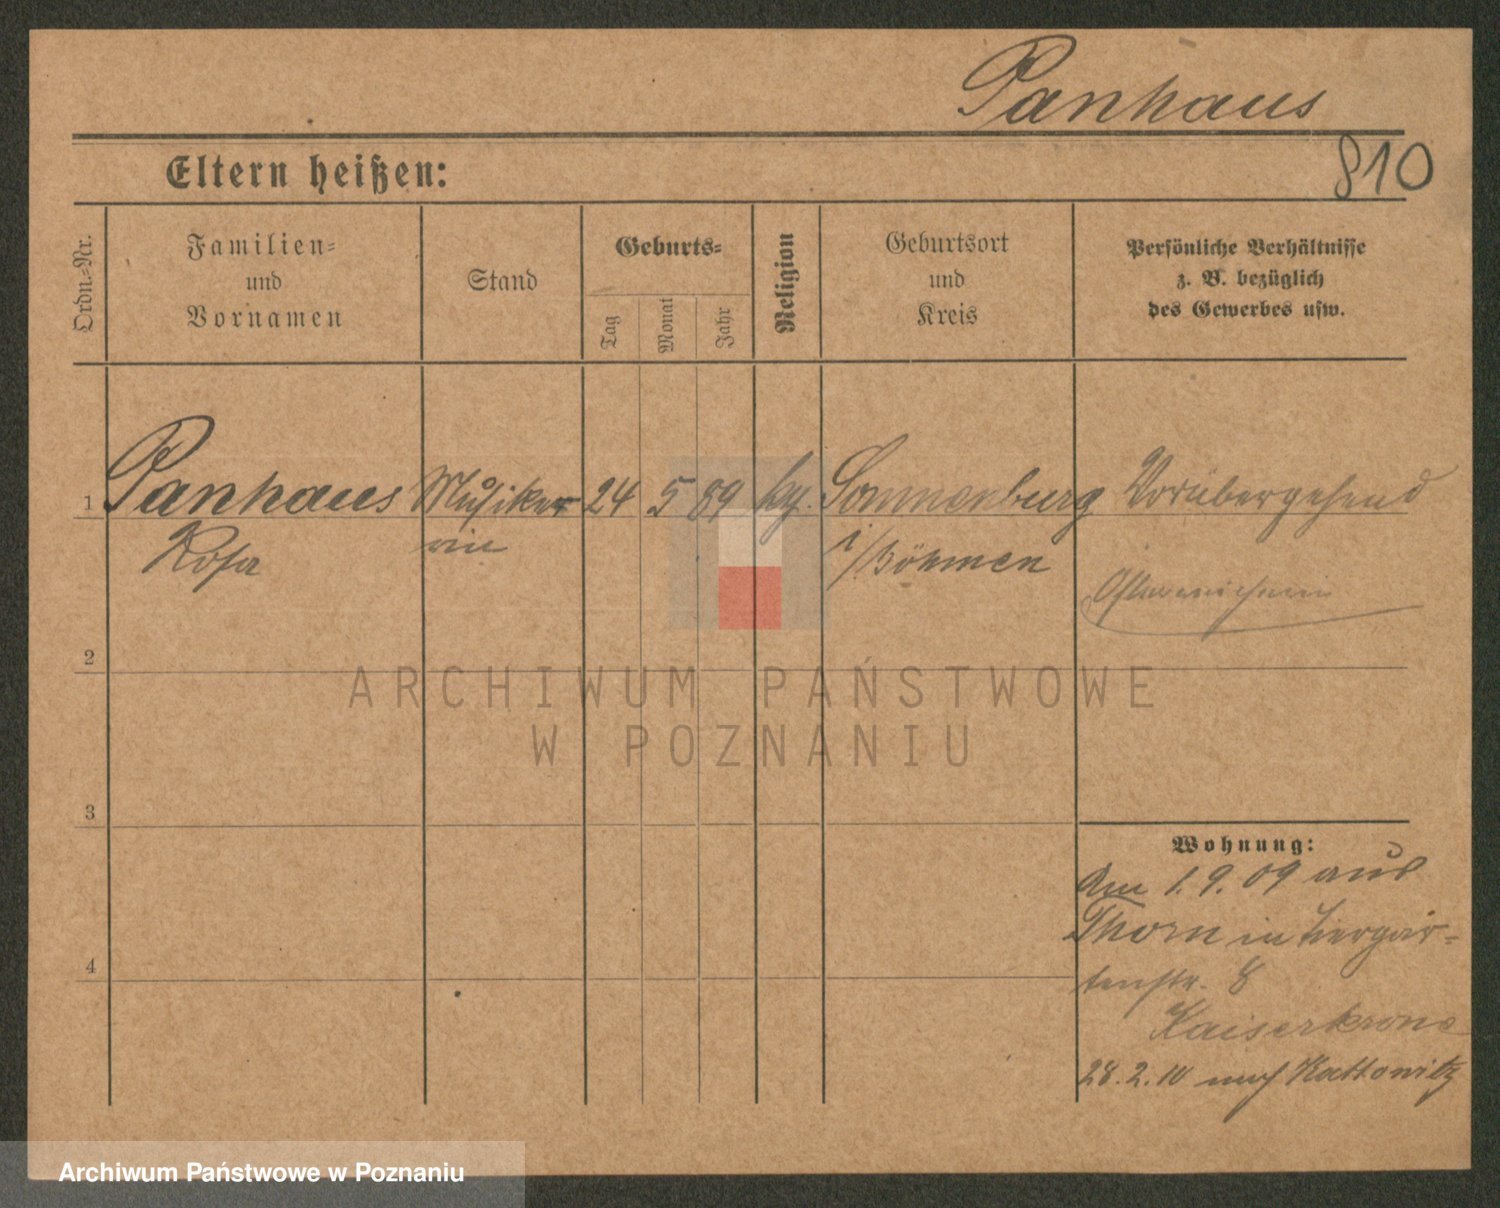 Panhaus
810
Eltern heißen:
Ordn.=Nr.
Familien=
und
Vornamen
Stand
Geburts=
Tag
Monat
Jahr
Religion
Geburtsort
und
Kreis
Persönliche Verhältnisse
z. B. bezüglich
des Gewerbes usw.
1 Panhaus Musiker 24 5 89 Sonnenburg Vorübergehend
Rosa rin i/Böhmen
Österreicherin
2
3
4
Wohnung:
Am 1.9.09 aus
Thorn in Tiergar=
tenstr. 8
Kaiserkrone
28.2.10 nach Kattowitz
ARCHIWUM PAŃSTWOWE
W POZNANIU
Archiwum Państwowe w Poznaniu